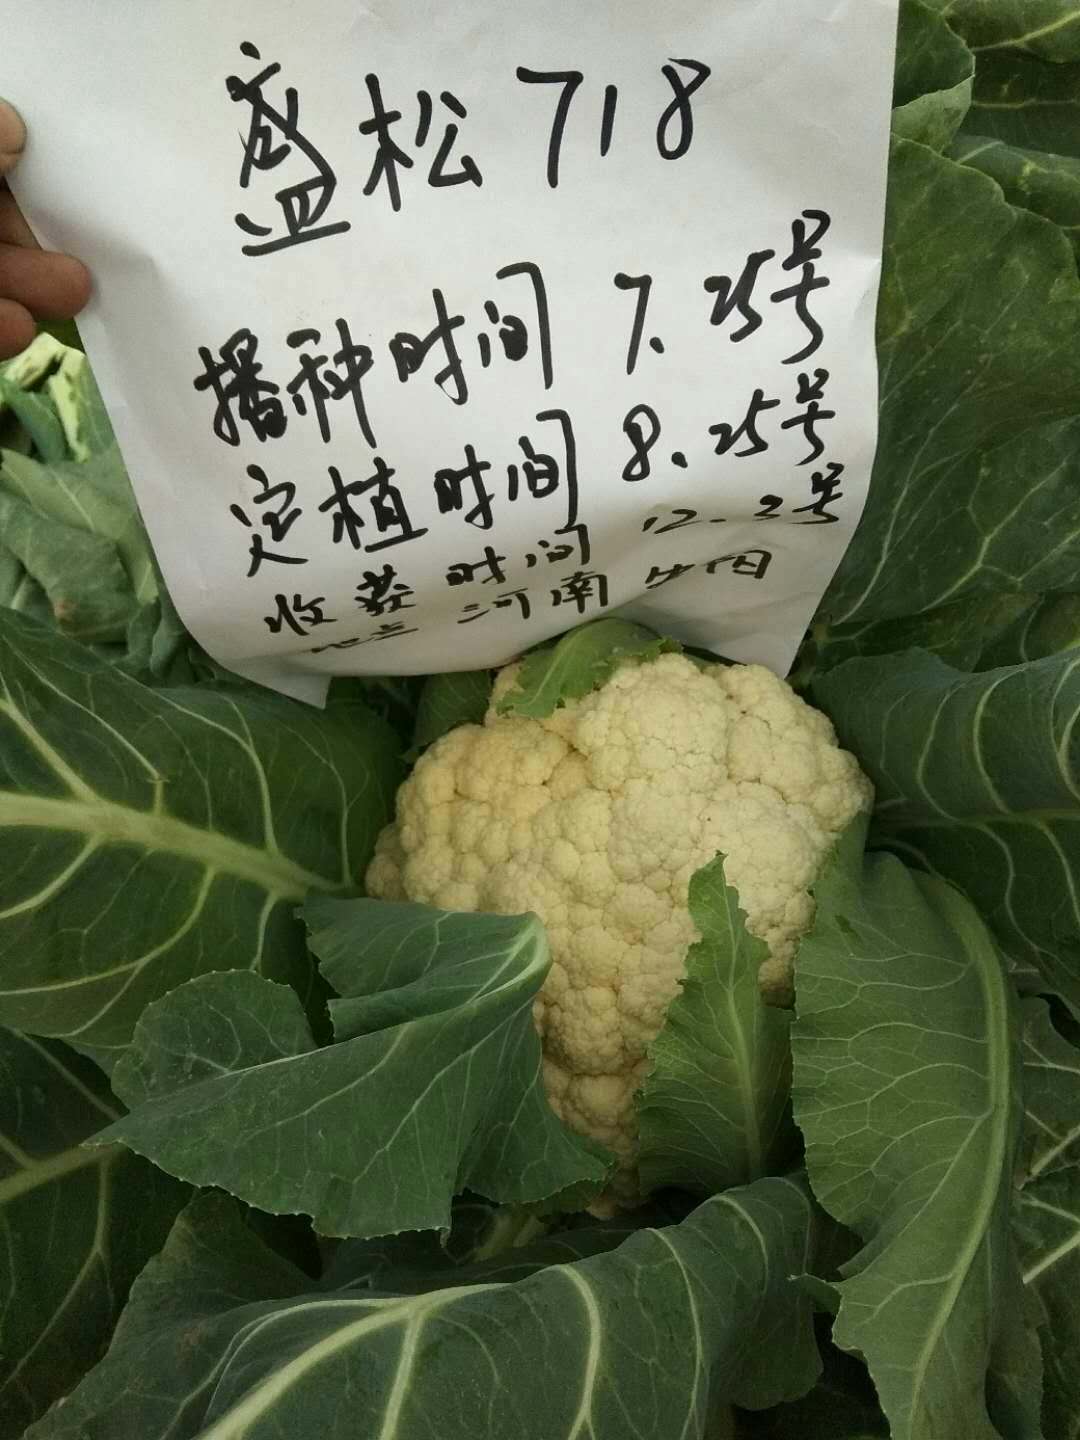 盛松718
播种时间 7.25号
定植时间 8.25号
收获时间 12.2号
地点 河南